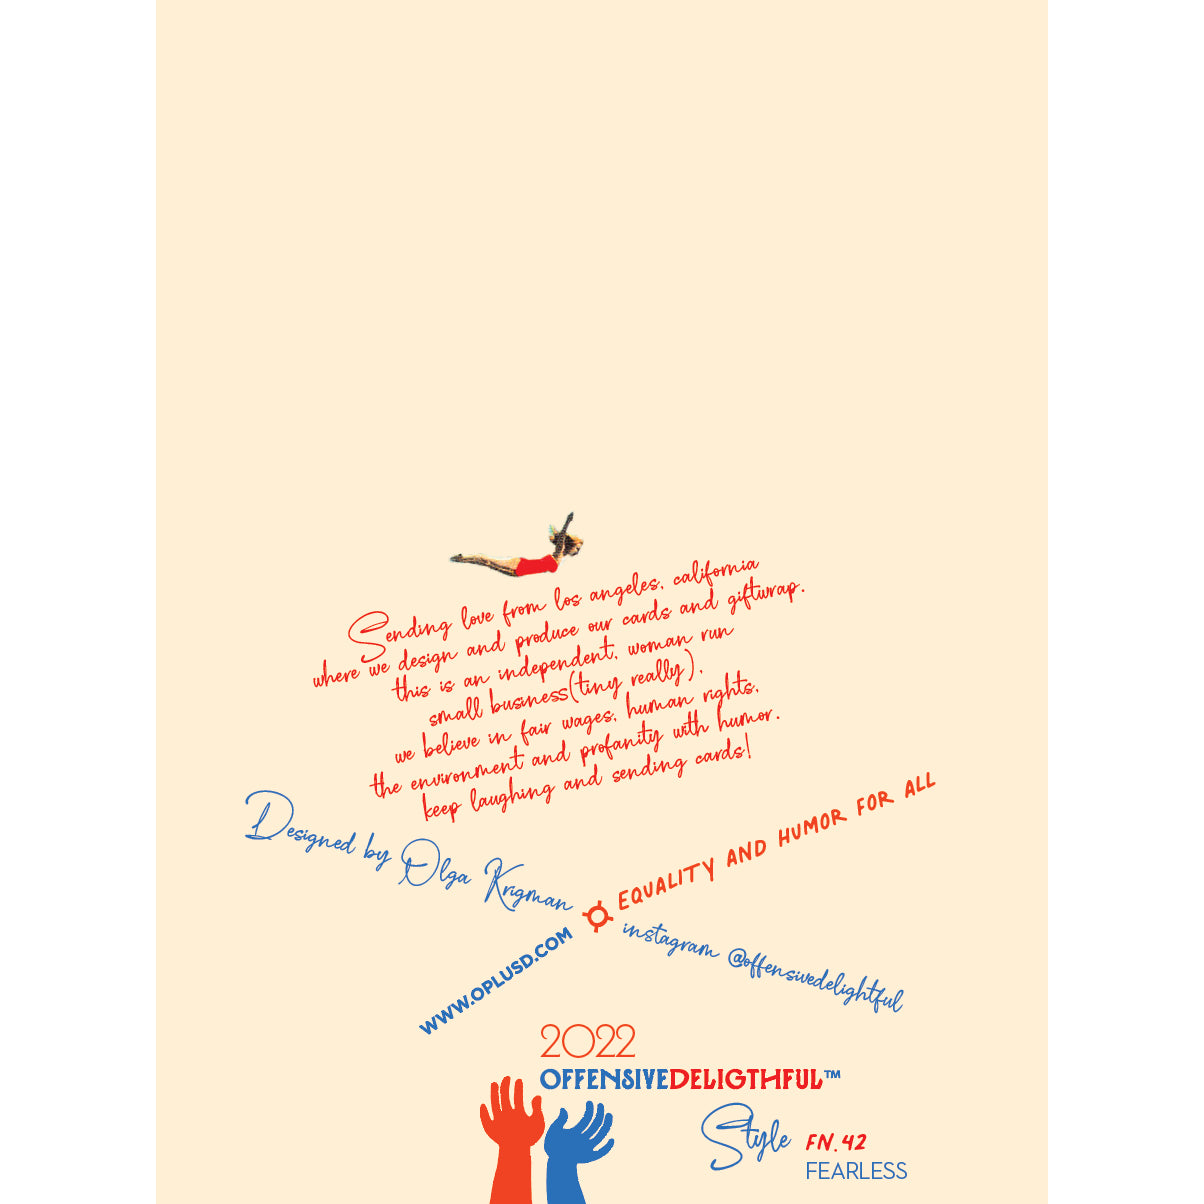 Sending love from los angeles, california
where we design and produce our cards and giftwrap.
this is an independent, woman run
small business(tiny really),
we believe in fair wages, human rights,
the environment and profanity with humor.
keep laughing and sending cards!
Designed by Olga Krigman
EQUALITY AND HUMOR FOR ALL
WWW.OPLUSD.COM
instagram @offensivedelightful
2022
OFFENSIVEDELIGTHFUL™
Style FN.42
FEARLESS